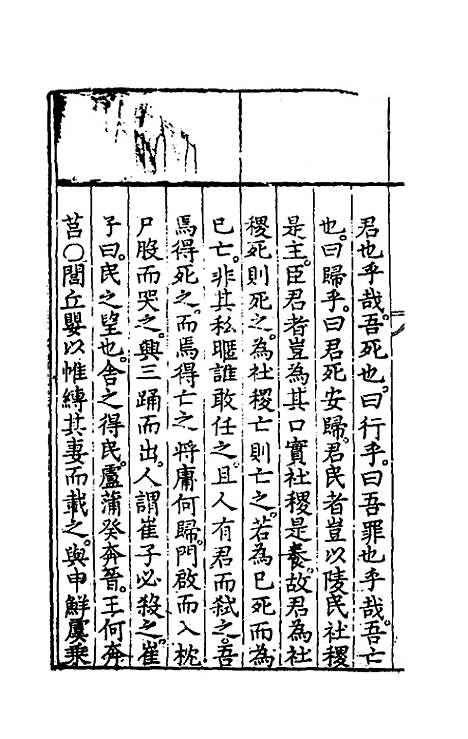 君也乎哉。吾死也。曰行乎。曰吾罪也乎哉。吾亡
也。曰歸乎。曰君死安歸。君民者豈以陵民社稷
是主。臣君者豈為其口實社稷是養。故君為社
稷死則死之。為社稷亡則亡之。若為己死而為
己亡。非其私暱誰敢任之。且人有君而弒之。吾
焉得死之。而焉得亡之。將庸何歸。門啟而入枕
尸股而哭之。興三踊而出。人謂崔子必殺之。崔
子曰。民之望也。舍之得民。盧蒲癸奔晉。王何奔
莒○閭丘嬰以帷縳其妻而載之。與申鮮虞乗